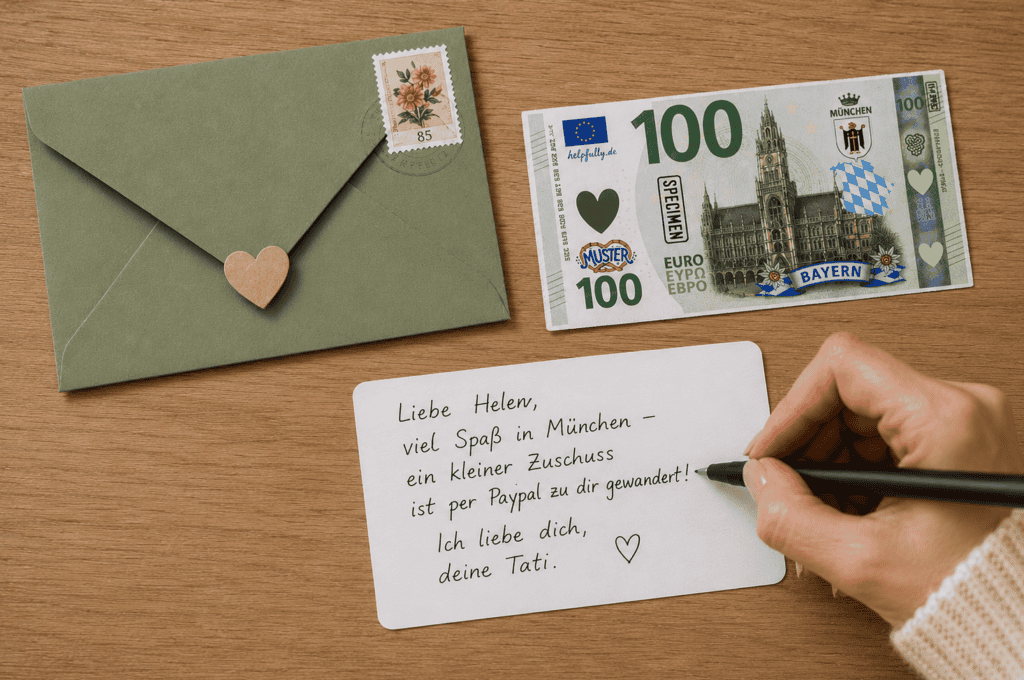 85
helpfully.de
100
SPECIMEN
MUSTER
100
EURO
ΕΥΡΩ
ЕВРО
MÜNCHEN
BAYERN
100
Liebe Helen,
viel Spaß in München –
ein kleiner Zuschuss
ist per Paypal zu dir gewandert!
Ich liebe dich,
deine Tati.